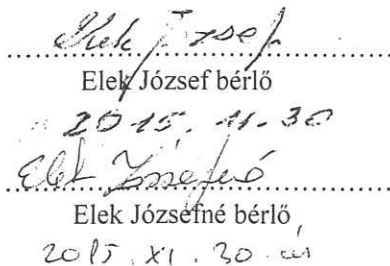 Elek József
Elek József bérlő
2015. 11. 30
Elek Józsefné
Elek Józsefné bérlő
2015. XI. 30.